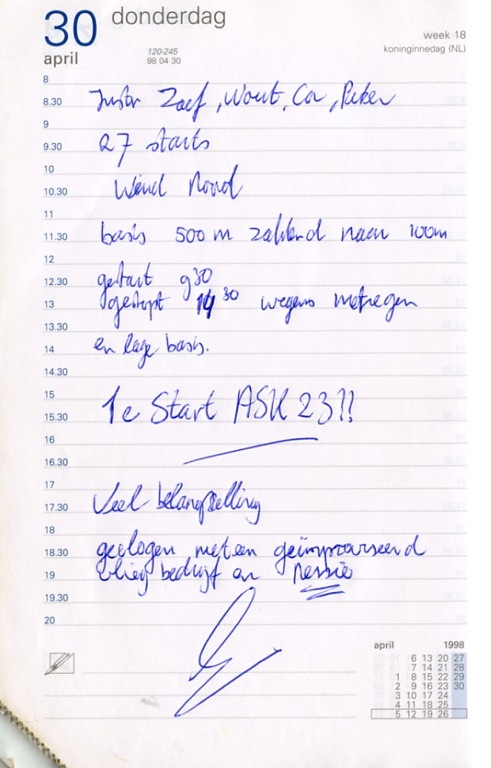 30 donderdag
april
120-245
98 04 30
week 18
koninginnedag (NL)
8
8.30 Zoef, Wout, Cor,
9
9.30 27 starts
10
10.30 Wind Noord
11
11.30 basis 500 m zakkend naar 100m
12
12.30 gestart 9 30
13 gestopt 14 30 wegens motregen
13.30
14 en lage basis.
14.30
15
15.30 1e Start ASK 23!!
16
16.30
17
17.30 Veel belangstelling
18
18.30 gevlogen met een geïmproviseerd
19 vlieg bedrijf en
19.30
20
april 1998
6 13 20 27
7 14 21 28
1 8 15 22 29
2 9 16 23 30
3 10 17 24
4 11 18 25
5 12 19 26